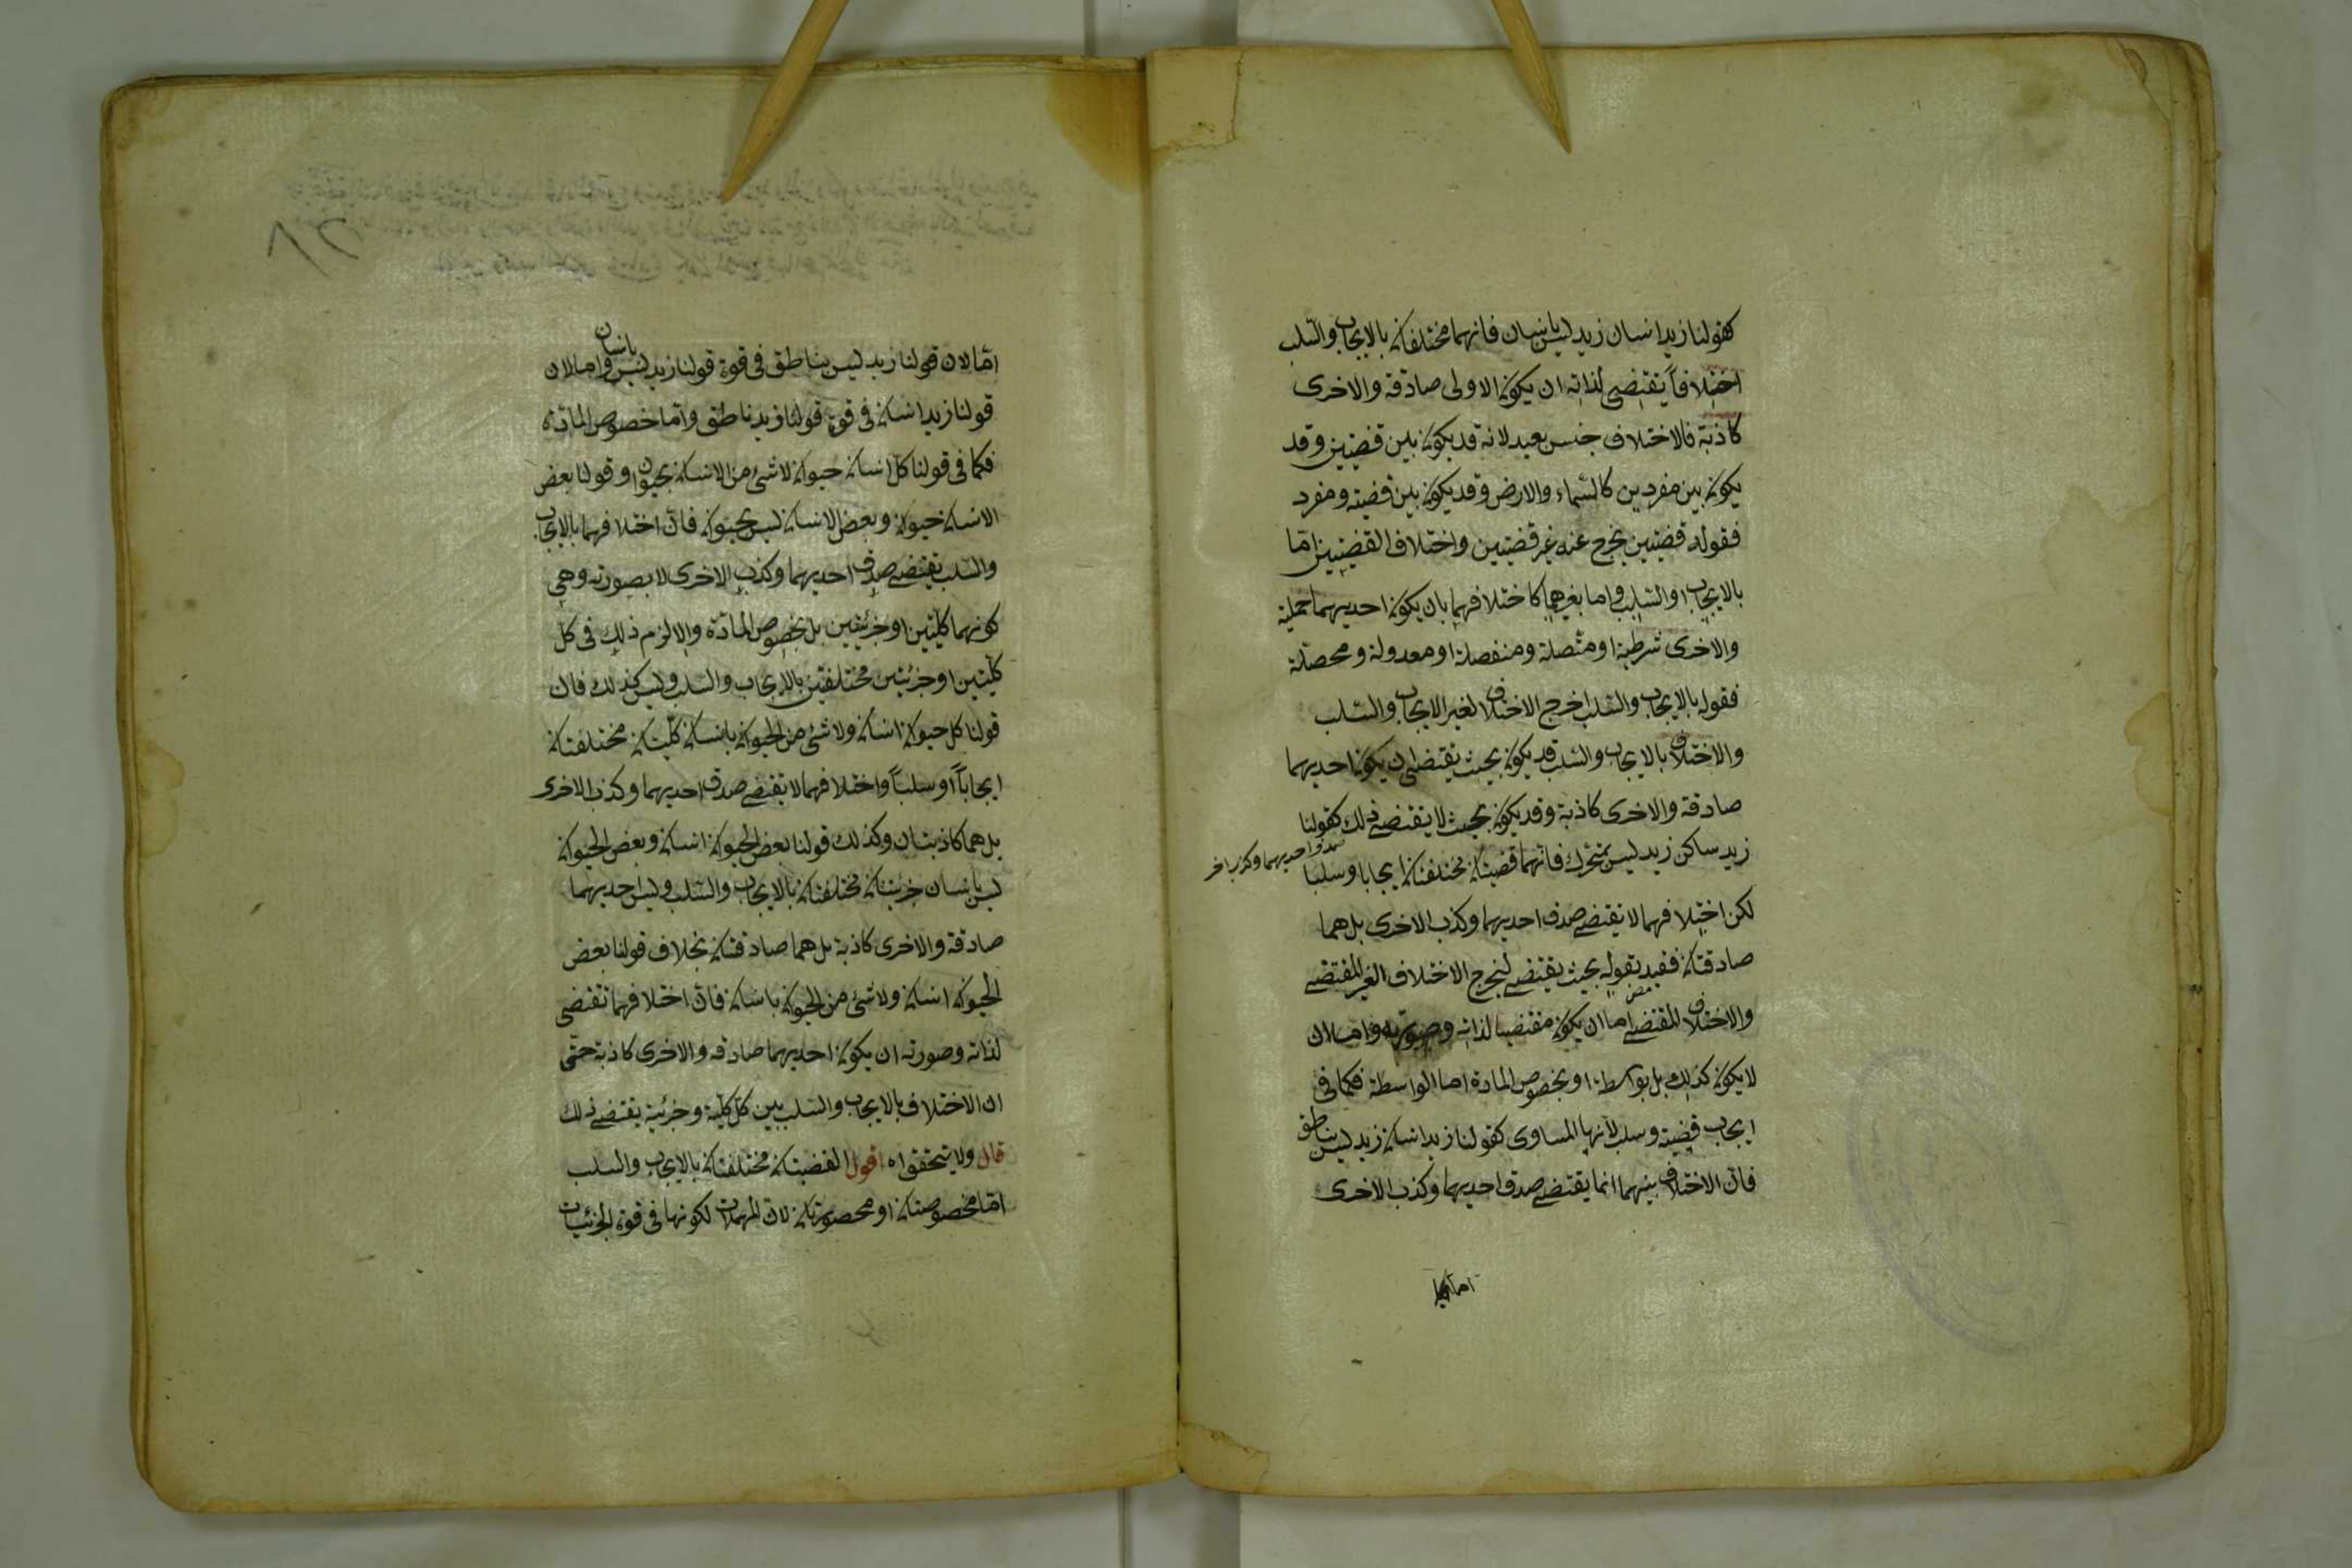 كقولنا زيد انسان زيد ليس بانسان فانهما مختلفان بالايجاب والسّلب
اختلافاً يقتضى لذاته ان يكون الاولى صادقة والاخرى
كاذبة فالاختلاف جنس بعيد لانه قد يكون بين قضيتين وقد
يكون بين مفردين كالسّماء والارض وقد يكون بين قضية ومفرد
فقوله قضيتين يخرج عنه غير قضيتين واختلاف القضيتين امّا
بالايجاب والسّلب واما بغيرهما كاختلافهما بان يكون احديهما حملية
والاخرى شرطية او متّصلة ومنفصلة او معدولة ومحصّلة
فقوله بالايجاب والسّلب اخرج الاختلاف لغير الايجاب والسّلب
والاختلاف بالايجاب والسّلب قد يكون بحيث يقتضى ان يكون احديهما
صادقة والاخرى كاذبة وقد يكون بحيث لا يقتضى ذلك كقولنا
زيد ساكن زيد ليس بمتحرك فانّهما قضيتان مختلفتان ايجابا وسلبا
لكن اختلافهما لا يقتضى صدق احديهما وكذب الاخرى بل هما
صادقتان فقيد بقوله بحيث يقتضى ليخرج الاختلاف الغير المقتضى
والاختلاف المقتضى اما ان يكون مقتضيا لذاته وصورته واما ان
لا يكون كذلك بل بواسطة او بخصوص المادة اما الواسطة فكما فى
ايجاب قضية وسلب لازمها المساوى كقولنا زيد انسان زيد ليس بناطق
فانّ الاختلاف بينهما انما يقتضى صدق احديهما وكذب الاخرى
امّا لان قولنا زيد ليس بناطق فى قوة قولنا زيد ليس بانسان واما لان
قولنا زيد انسان فى قوة قولنا زيد ناطق وامّا خصوص المادّة
فكما فى قولنا كل انسان حيوان لا شئ من الانسان بحيوان وقولنا بعض
الانسان حيوان وبعض الانسان ليس بحيوان فانّ اختلافهما بالايجاب
والسّلب يقتضى صدق احديهما وكذب الاخرى لا بصورته وهى
كونهما كليّتين او جزئيتين بل بخصوص المادّة والا لزم ذلك فى كل
كليّتين او جزئيتين مختلفتين بالايجاب والسّلب وليس كذلك فان
قولنا كل حيوان انسان ولا شئ من الحيوان بانسان كليّتان مختلفتان
ايجاباً وسلباً واختلافهما لا يقتضى صدق احديهما وكذب الاخرى
بل هما كاذبتان وكذلك قولنا بعض الحيوان انسان وبعض الحيوان
ليس بانسان جزئيتان مختلفتان بالايجاب والسّلب وليس احديهما
صادقة والاخرى كاذبة بل هما صادقتان بخلاف قولنا بعض
الحيوان انسان ولا شئ من الحيوان بانسان فانّ اختلافهما تقتضى
لذاته وصورته ان يكون احديهما صادقه والاخرى كاذبة حتّى
ان الاختلاف بالايجاب والسّلب بين كلّ كليّة وجزئية يقتضى ذلك
قال ولا يتحقق اه اقول القضيتان مختلفتان بالايجاب والسلب
امّا مخصوصتان او محصورتان لانّ المهملات لكونها فى قوة الجزئيات